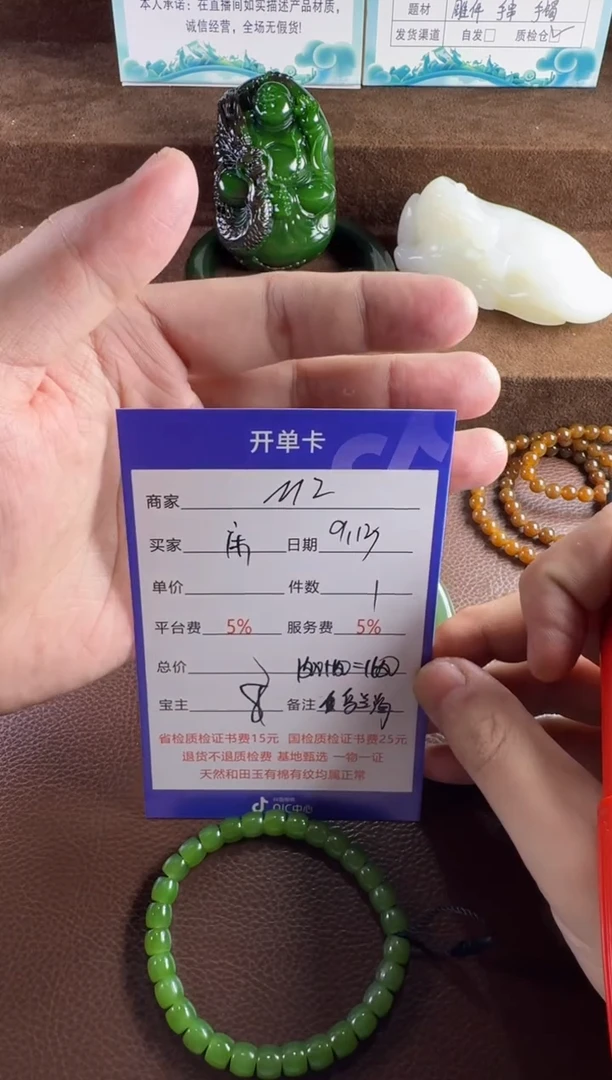 本人承诺：在直播间如实描述产品材质，
诚信经营，全场无假货！
题材
发货渠道 自发□ 质检仓☑
开单卡
商家 112
买家 日期 9.12
单价 件数 1
平台费 5% 服务费 5%
总价 1500+160=1660
宝主 8 备注
省检质检证书费15元 国检质检证书费25元
退货不退质检费 基地甄选 一物一证
天然和田玉有棉有纹均属正常
中心